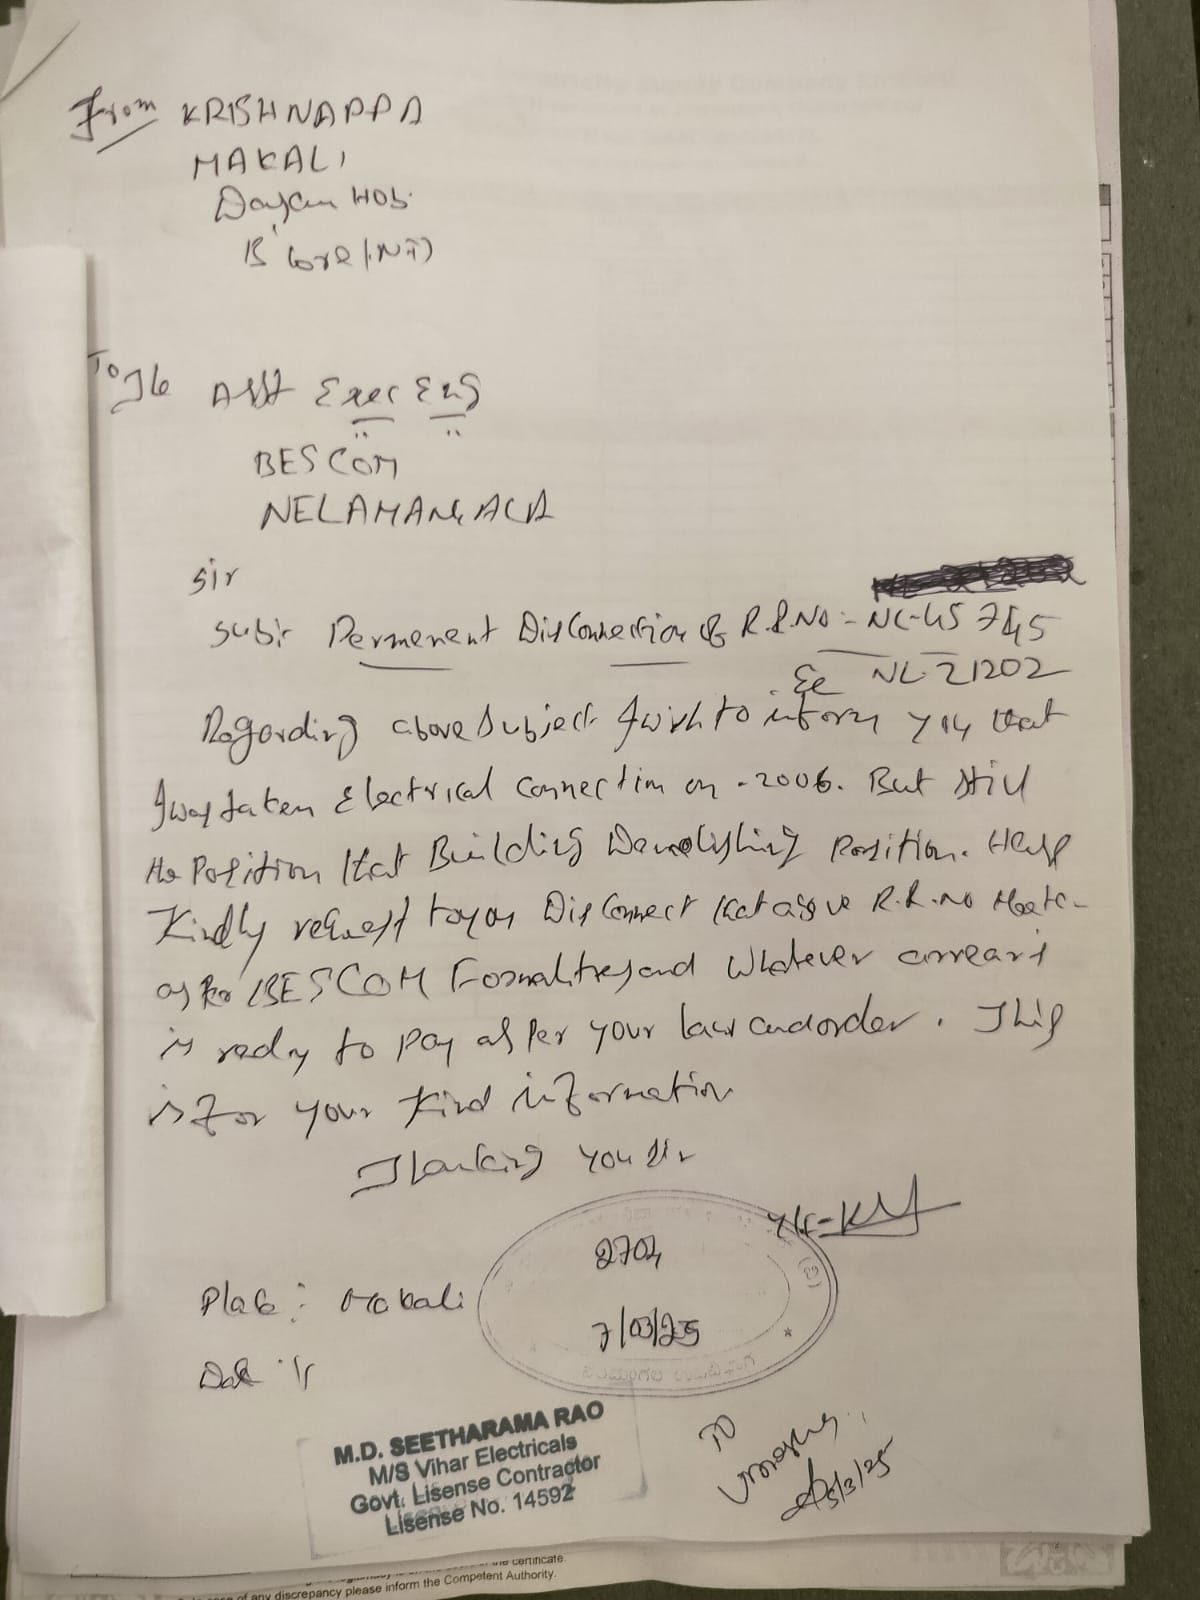 From KRISHNAPPA
MAKALI
Dasan HOb.
B'lore (NT)
To The Asst Exec Eng
BESCOM
NELAMANGALA
Sir
Sub:- Permenent DisConnection of R.R.No - NL-45745
& NL-21202
Regarding above Subject I wish to inform you that
I was taken Electrical Connection on - 2006. But still
the Position that Building Demolishing Position. Hense
Kindly request to you DisConnect that R.R.no
as per BESCOM Formalities and Whatever arrears
is redy to pay as Per your law and order. This
is for your Kind information
Thanking you Sir
Place: Makali
2704
7/03/25
Date :-
M.D. SEETHARAMA RAO
M/S Vihar Electricals
Govt. Lisense Contractor
Lisense No. 14592
TO
5/3/25
the certificate.
of any discrepancy please inform the Competent Authority.